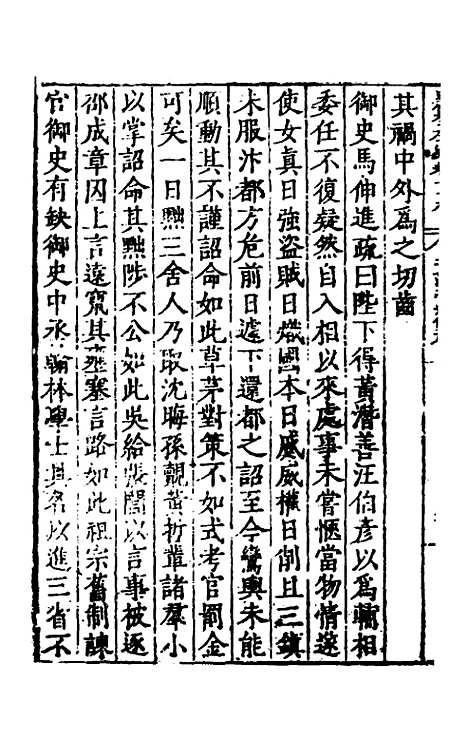 其禍中外爲之切齒
御史馬伸進疏曰陛下得黃潛善汪伯彥以爲輔相
委任不復疑然自入相以來處事未嘗愜當物情遂
使女眞日強盜賊日熾國本日蹙威權日削且三鎮
未服汴都方危前日遽下還都之詔至今鸞輿未能
順動其不謹詔命如此草茅對策不如式考官罰金
可矣一日黜三舍人乃取沈晦孫覿黃哲輩諸羣小
以掌詔命其黜陟不公如此吳給張誾以言事被逐
邵成章囚上言遠竄其壅塞言路如此祖宗舊制諫
官御史有缺御史中丞翰林學士具名以進三省不